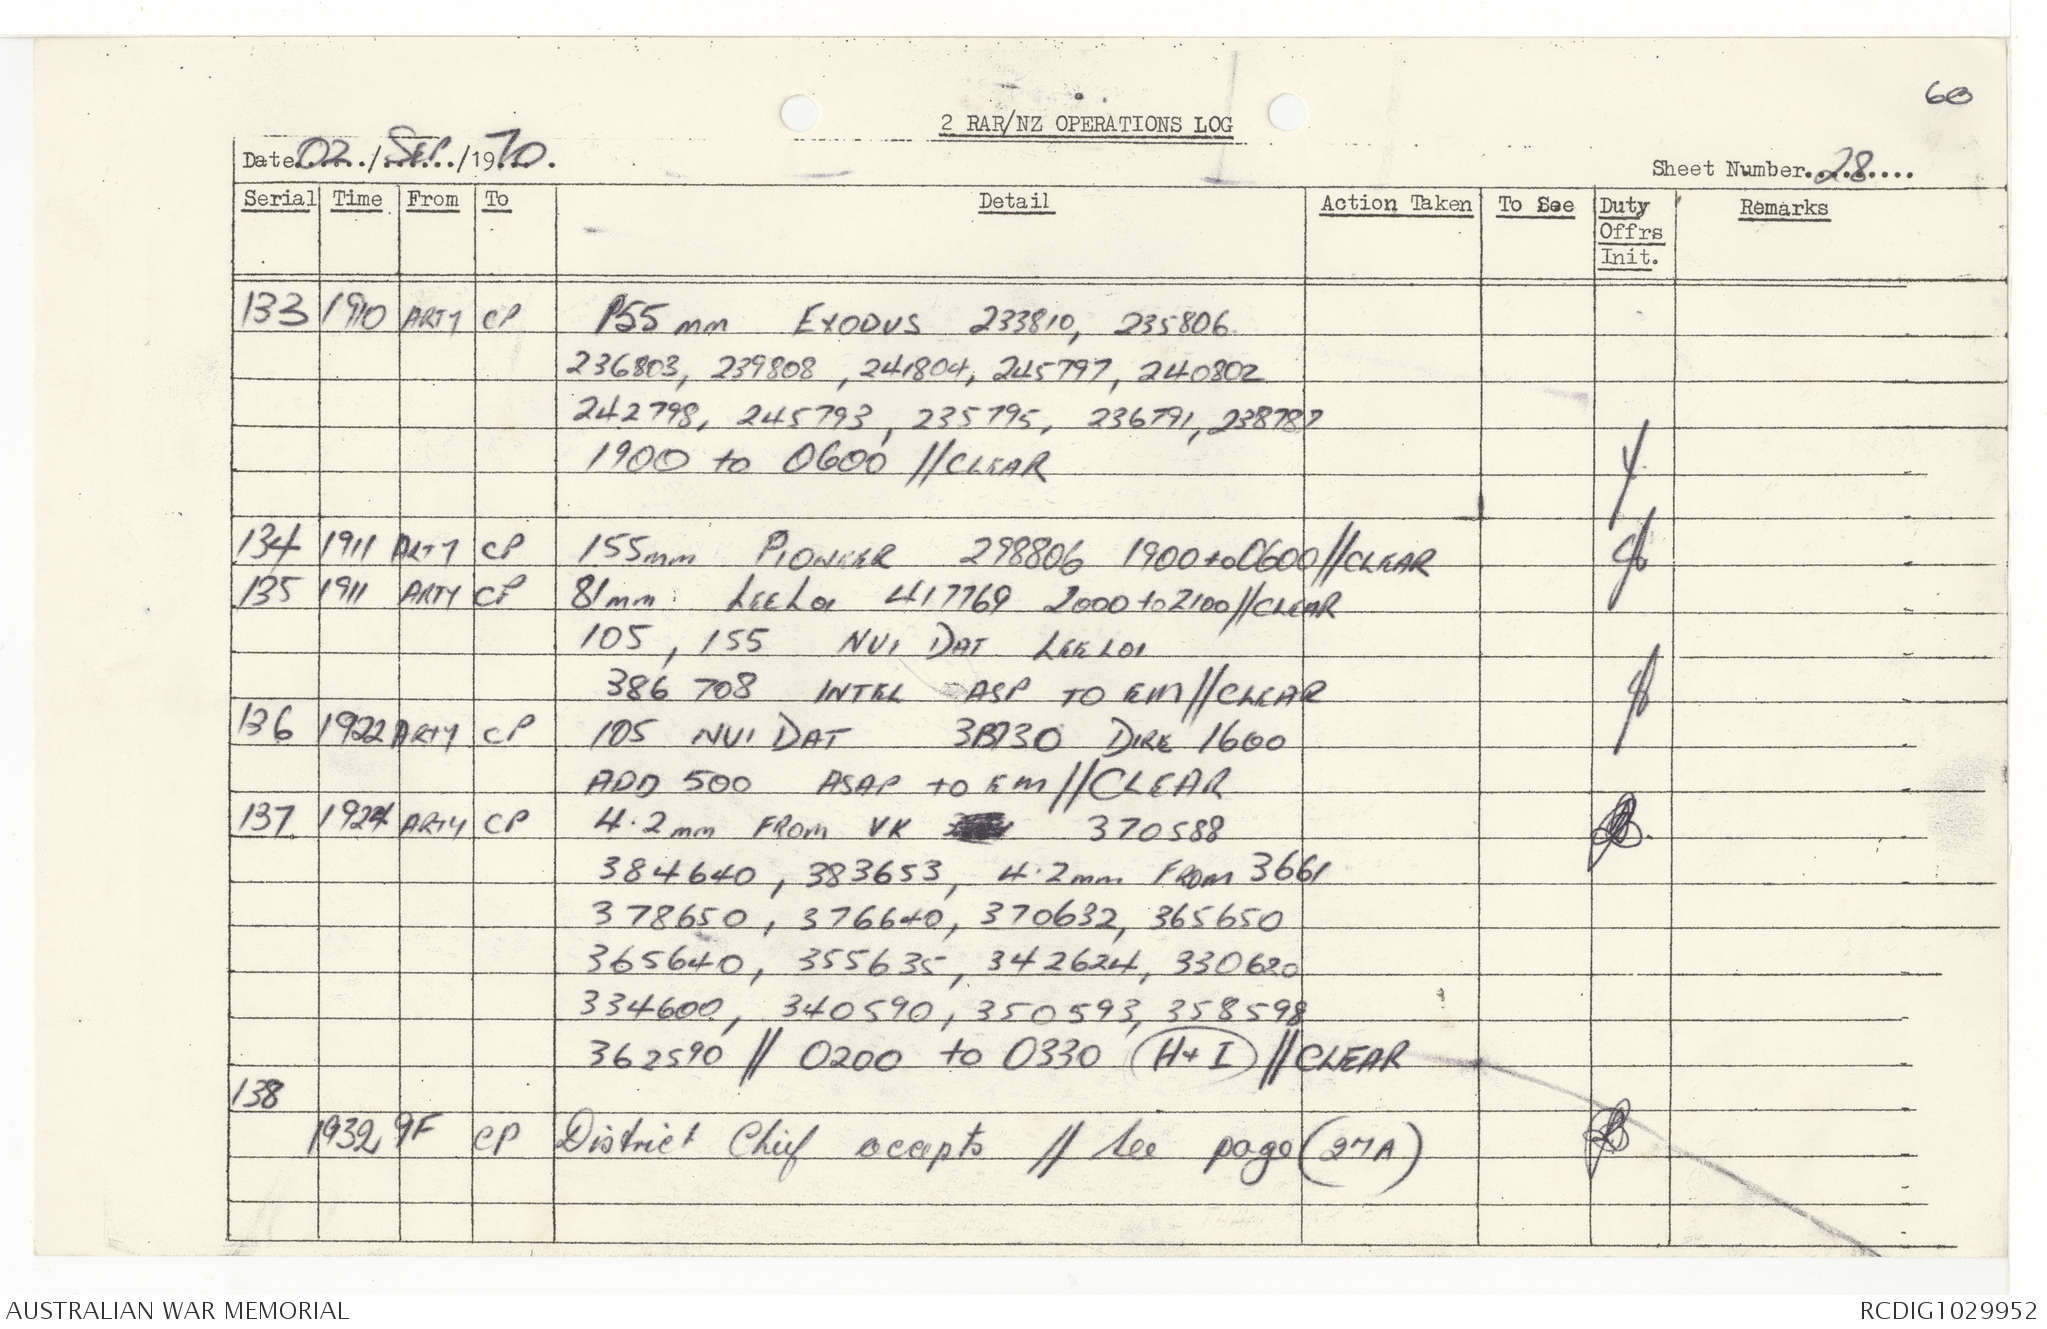 60
2 RAR/NZ OPERATIONS LOG
Date 02/SEP/1970.
Sheet Number 28
Serial Time From To Detail Action Taken To See Duty Offrs Init. Remarks
133 1910 ARTY CP 155mm EXODUS 233810, 235806
236803, 239808, 241804, 245797, 240802
242798, 245793, 235795, 236791, 238787
1900 to 0600 //CLEAR
134 1911 ARTY CP 155mm PIONEER 298806 1900 to 0600//CLEAR
135 1911 ARTY CP 81mm LEELOI 417769 2000 to 2100//CLEAR
105, 155 NUI DAT LEELOI
386 708 INTEL ASP TO EM//CLEAR
136 1922 ARTY CP 105 NUI DAT DIRE 1600
ADD 500 ASAP to EM//CLEAR
137 1924 ARTY CP 4.2mm FROM VK 370588
384640, 383653, 4.2mm FROM 3661
378650, 376640, 370632, 365650
365640, 355635, 342624, 330620
334600, 340590, 350593, 358598
362590 // 0200 to 0330 (H+I) //CLEAR
138
1932 9F CP District Chief accepts // See page (27A)
AUSTRALIAN WAR MEMORIAL
RCDIG1029952